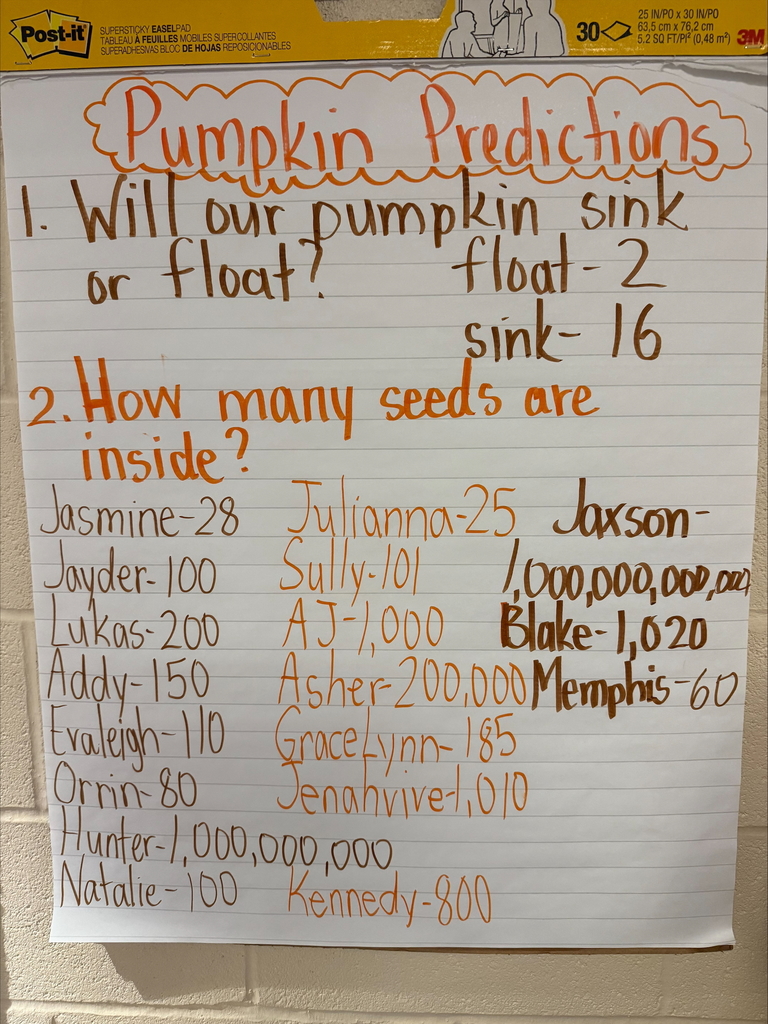 Post-it
SUPERSTICKY EASELPAD
TABLEAU À FEUILLES MOBILES SUPERCOLLANTES
SUPERADHESIVAS BLOC DE HOJAS REPOSICIONABLES
30
25 IN/PO x 30 IN/PO
63,5 cm x 76,2 cm
5,2 SQ FT/PI² (0,48 m²)
3M
Pumpkin Predictions
1. Will our pumpkin sink
or float? float- 2
sink- 16
2. How many seeds are
inside?
Jasmine-28
Jayder-100
Lukas-200
Addy-150
Evaleigh-110
Orrin-80
Hunter-1,000,000,000
Natalie-100
Julianna-25
Sully-101
AJ-1,000
Asher-200,000
GraceLynn-185
Jenahvive-1,010
Kennedy-800
Jaxson-
1,000,000,000,000
Blake-1,020
Memphis-60